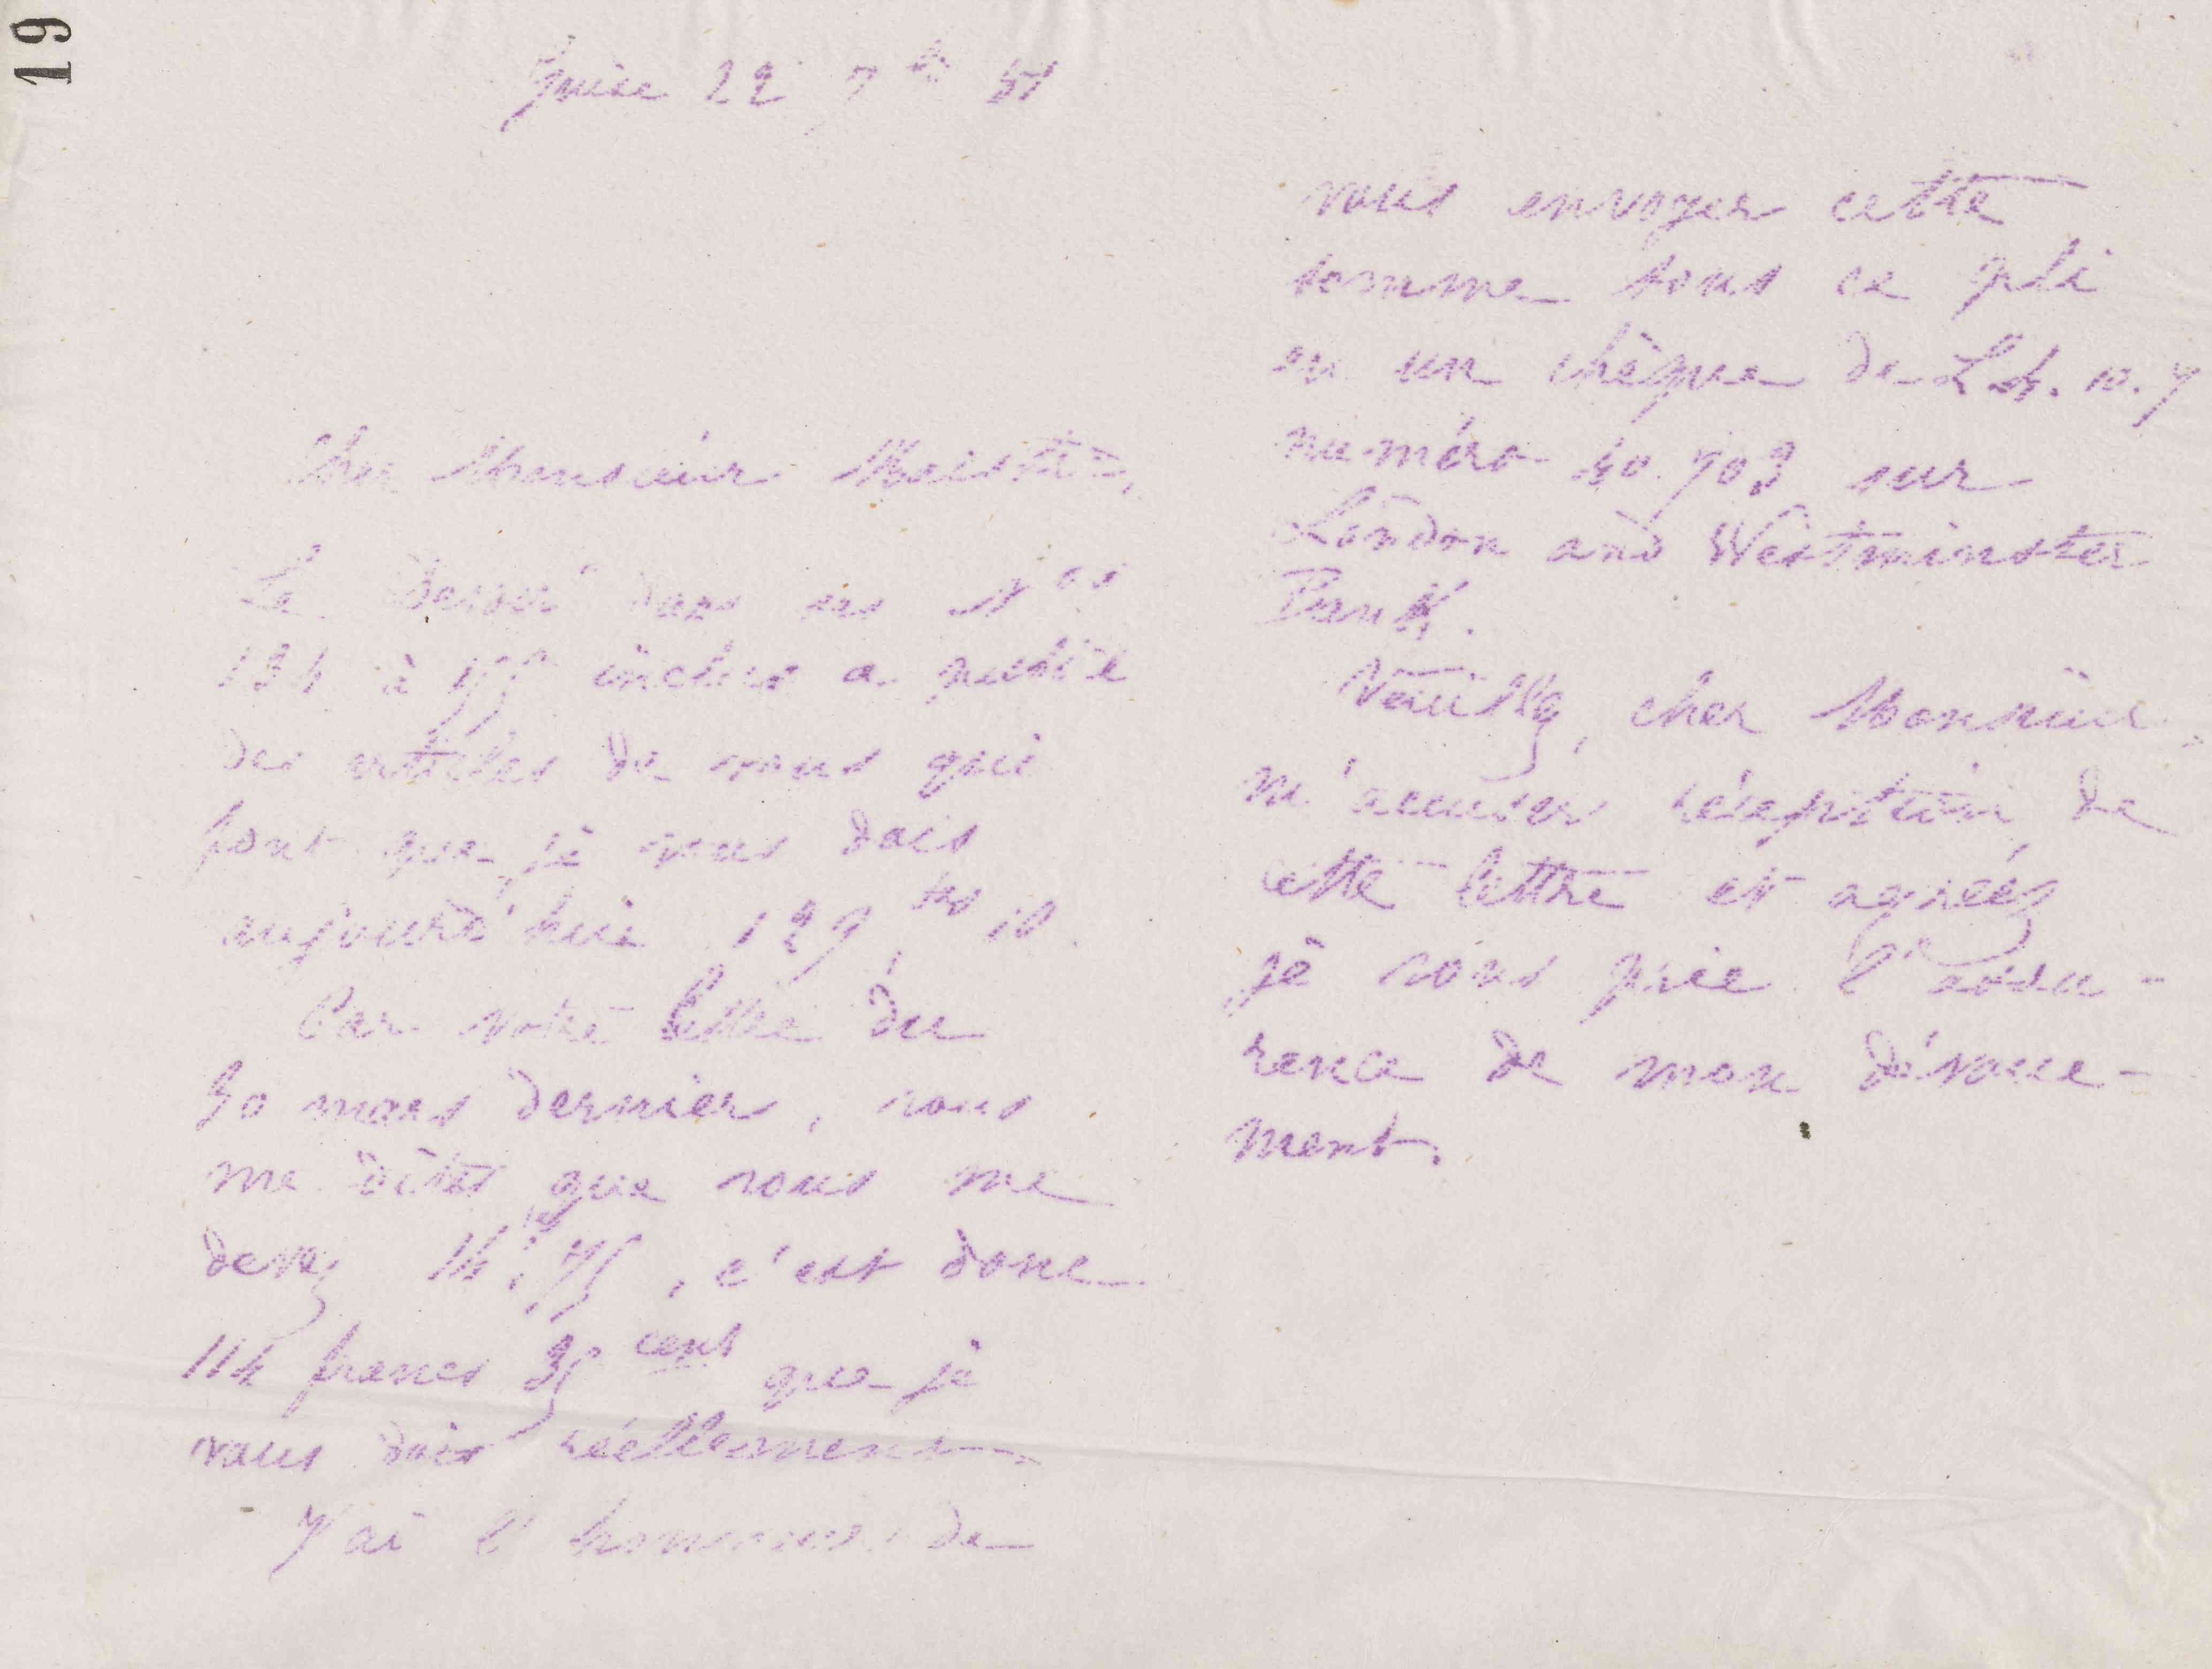 19
Guise 22 7bre 81
Cher Monsieur Maistre,
Le Devoir dans ses Nos
134 à 155 inclus a publié
des articles de vous qui
font que je vous dois
aujourd'hui 129 frs 10.
Par votre lettre du
30 mars dernier, vous
me dites que vous me
devez 14f,75, c'est donc
114 francs 35 cent que je
vous dois réellement.
J'ai l'honneur de
vous envoyer cette
somme sous ce pli
en un chèque de L 4.10.7
numéro 40.703 sur
London and Westminster
Bank.
Veuillez, cher Monsieur,
m'accuser réception de
cette lettre et agréez
je vous prie l'assu-
rance de mon dévoue-
ment.